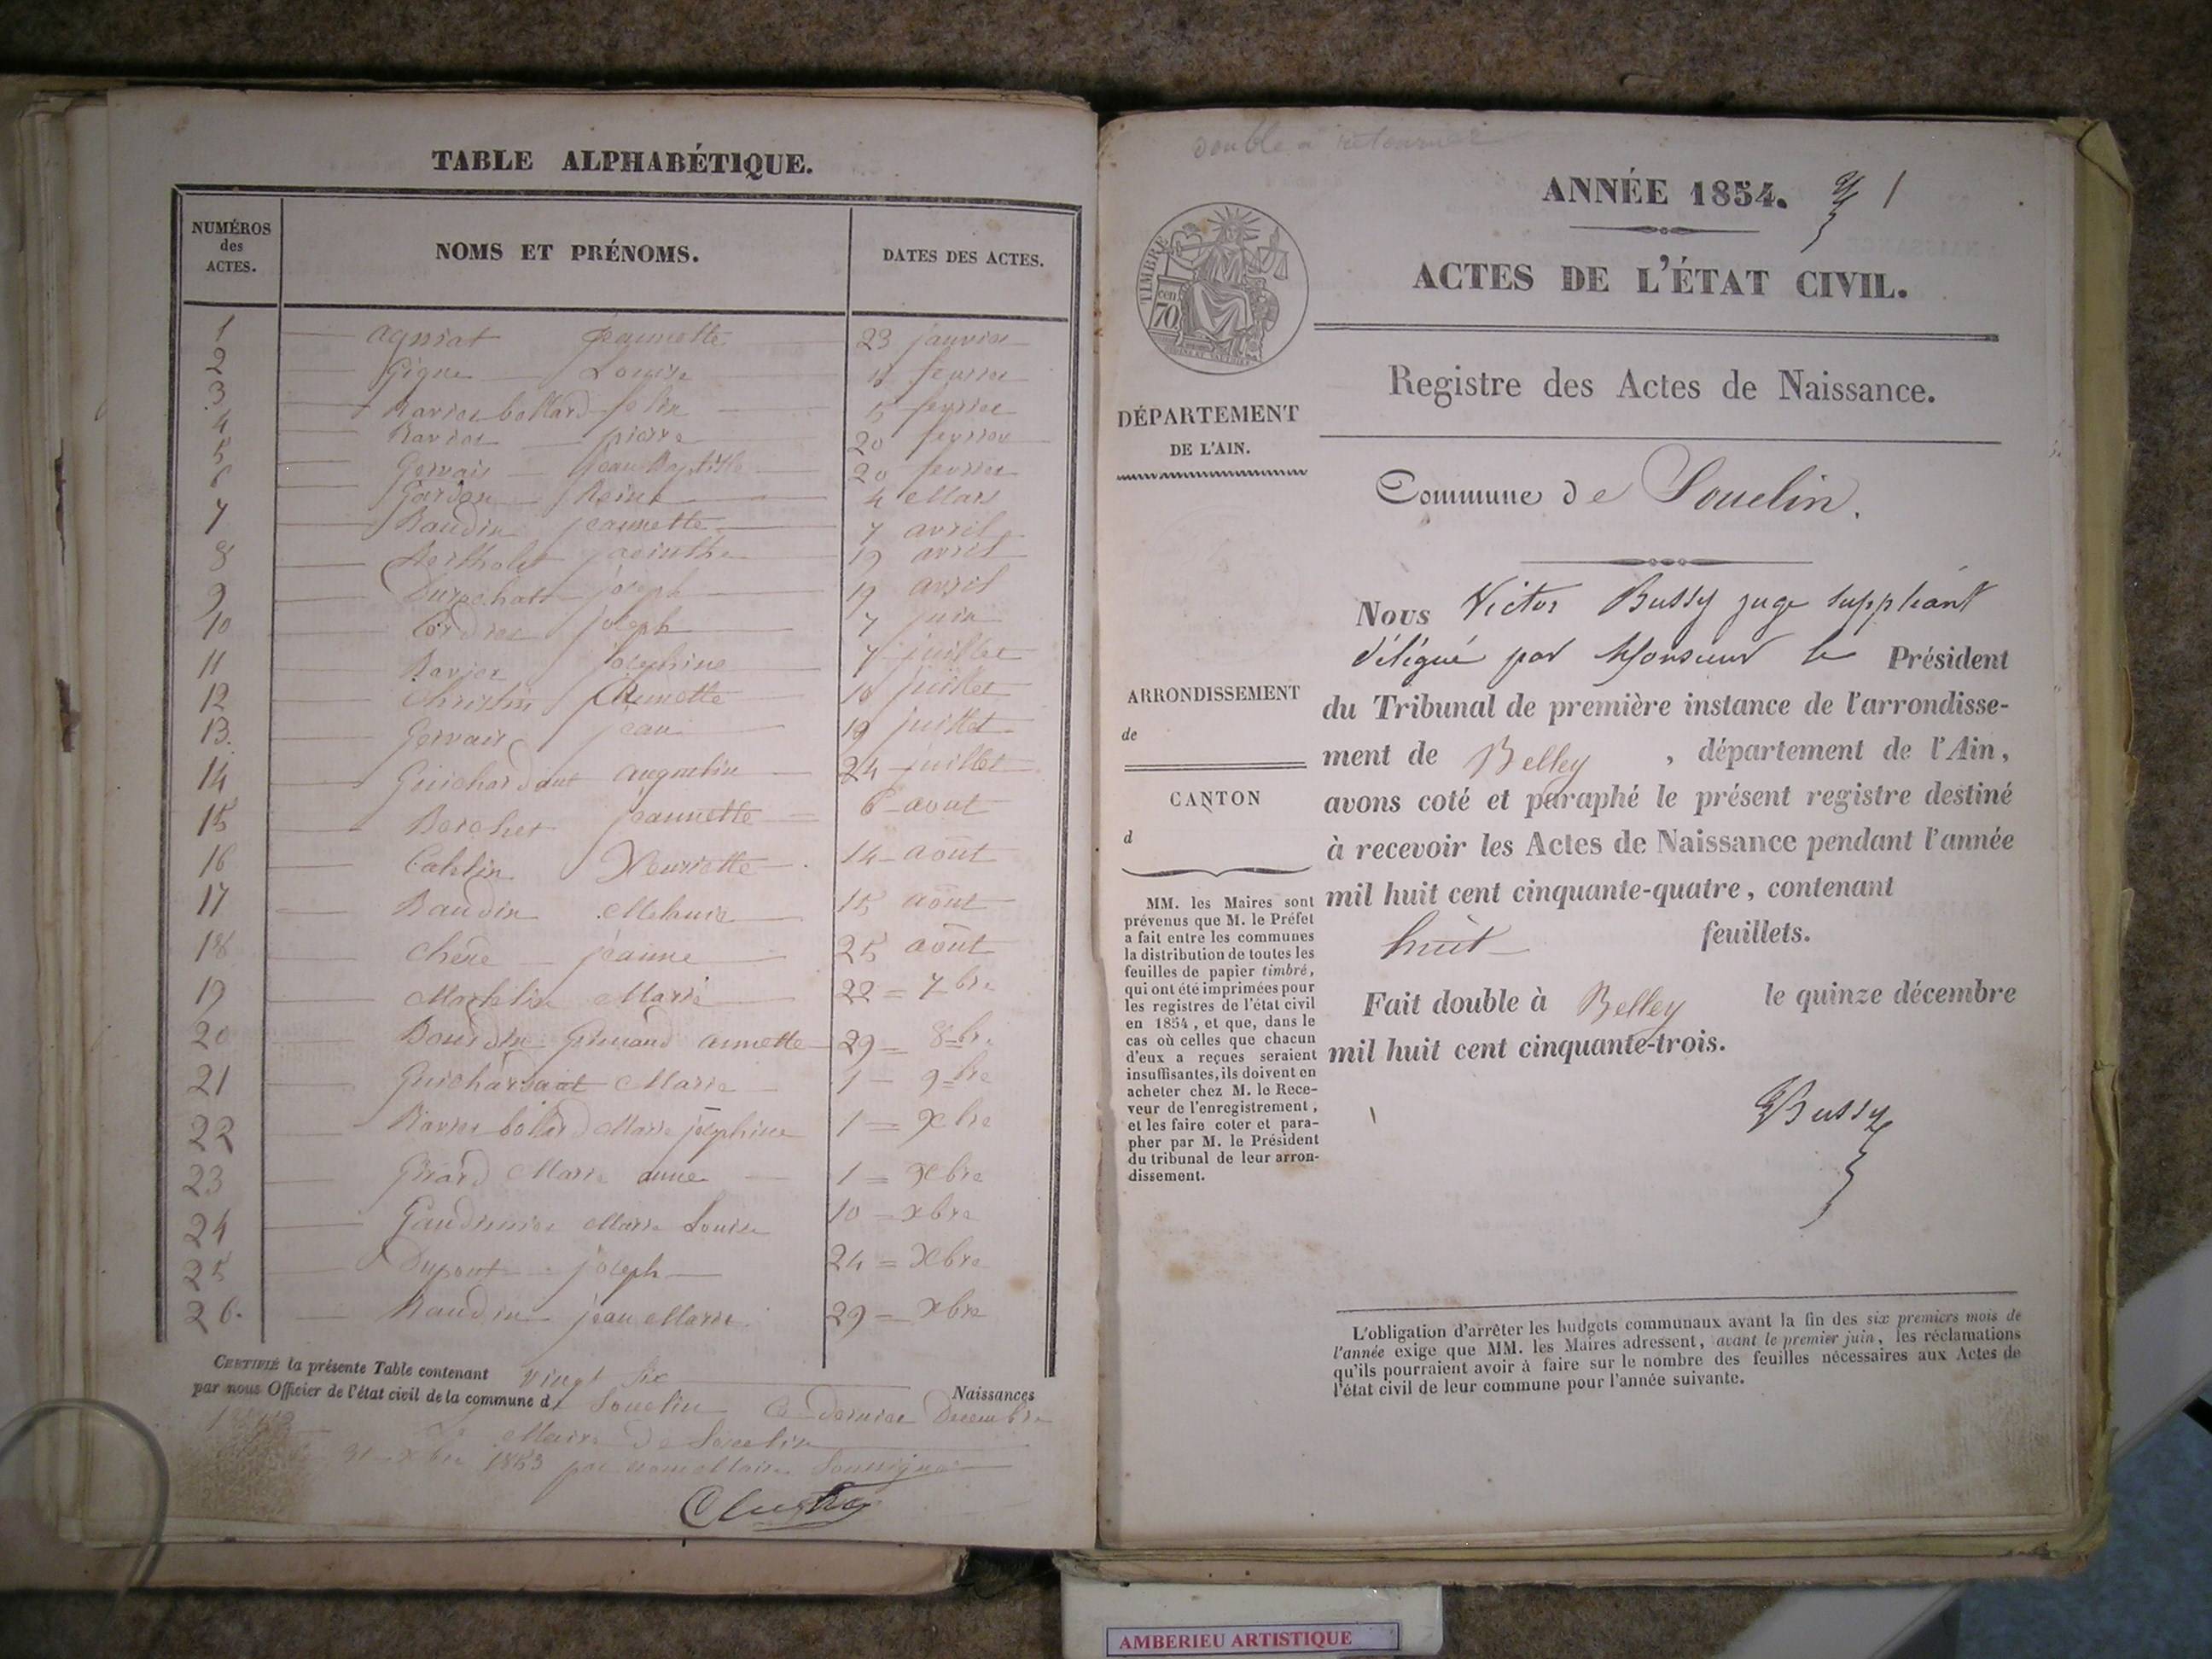 TABLE ALPHABÉTIQUE.
NUMÉROS
des
ACTES.
NOMS ET PRÉNOMS.
DATES DES ACTES.
1 Jeannette 23 janvier
2 Louise
3 fevrier
4 Ravier pierre 20 fevrier
5 Gervais Jean Baptiste 20 fevrier
6 Reine 4 Mars
7 Baudin jeannette 7 avril
8 19 avril
9 joseph 19 avril
10 Cordier joseph 7 juin
11 Ravier josephine 7 juillet
12 juillet
13. Gervais jean 19 juillet
14 24 juillet
15 jeannette 6 aout
16 Henriette 14 août
17 Baudin 15 août
18 jeanne 25 août
19 Marie 22 = 7bre
20 annette 29 = 8bre
21 Marie 1 = 9bre
22 Marie josephine 1 = xbre
23 Girard Marie anne 1 = xbre
24 Marie Louise 10 = xbre
25 Dupont joseph 24 = xbre
26. Baudin jean Marie 29 = xbre
CERTIFIÉ la présente Table contenant vingt six Naissances
par nous Officier de l'état civil de la commune de Souclin Ce dernier Decembre
Maire de Souclin
31 xbre 1853 par nous Maire Soussigné
Double a retourner
ANNÉE 1854. 1
TIMBRE
cen
70
ACTES DE L'ÉTAT CIVIL.
Registre des Actes de Naissance.
DÉPARTEMENT
DE L'AIN.
Commune de Souclin.
ARRONDISSEMENT
de
CANTON
d
MM. les Maires sont
prévenus que M. le Préfet
a fait entre les communes
la distribution de toutes les
feuilles de papier timbré,
qui ont été imprimées pour
les registres de l'état civil
en 1854, et que, dans le
cas où celles que chacun
d'eux a reçues seraient
insuffisantes, ils doivent en
acheter chez M. le Rece-
veur de l'enregistrement,
et les faire coter et para-
pher par M. le Président
du tribunal de leur arron-
dissement.
Nous Victor Bussy juge suppléant
délégué par Monsieur le Président
du Tribunal de première instance de l'arrondisse-
ment de Belley, département de l'Ain,
avons coté et paraphé le présent registre destiné
à recevoir les Actes de Naissance pendant l'année
mil huit cent cinquante-quatre, contenant
huit feuillets.
Fait double à Belley le quinze décembre
mil huit cent cinquante-trois.
Bussy
L'obligation d'arrêter les budgets communaux avant la fin des six premiers mois de
l'année exige que MM. les Maires adressent, avant le premier juin, les réclamations
qu'ils pourraient avoir à faire sur le nombre des feuilles nécessaires aux Actes de
l'état civil de leur commune pour l'année suivante.
AMBERIEU ARTISTIQUE